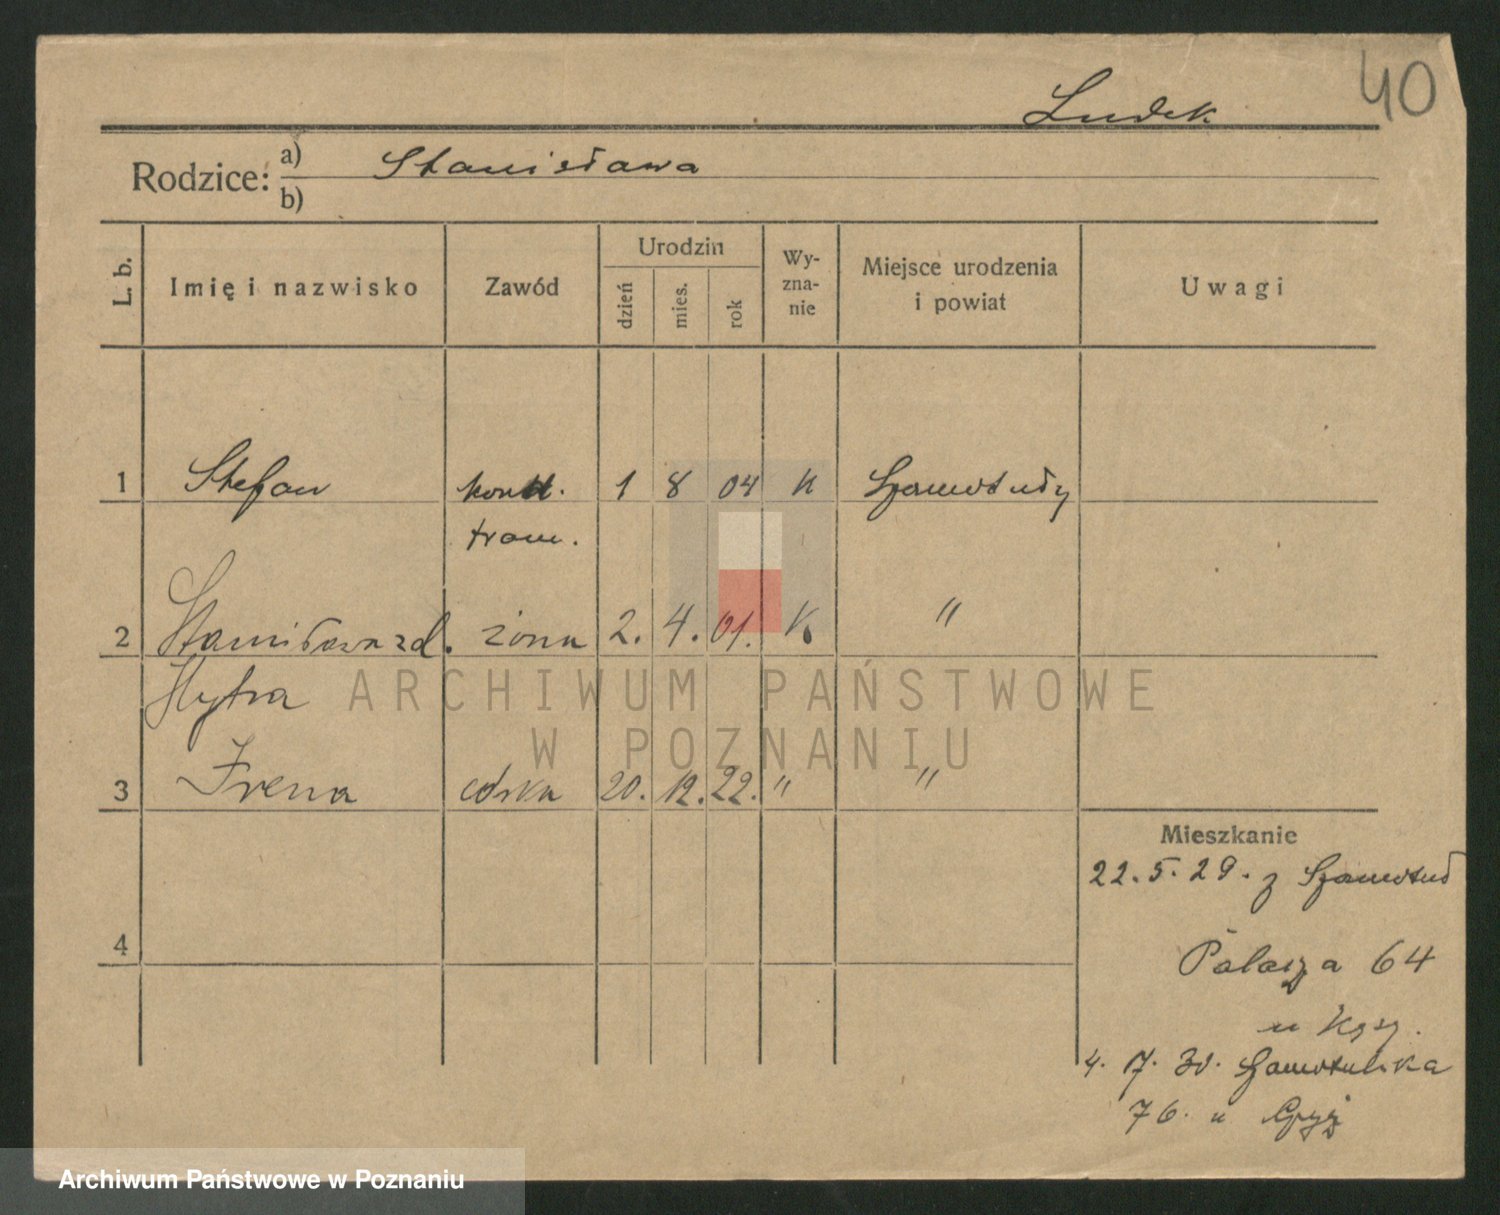 40
Ludek
Rodzice: a) Stanisława
b)
L. b. Imię i nazwisko Zawód Urodzin dzień mies. rok Wyznanie Miejsce urodzenia i powiat Uwagi
1 Stefan kond. 1 8 04 k Szamotuły
tram.
2 Stanisława zd. żona 2. 4. 01. k. "
Hytra
3 Irena córka 20. 12. 22. " "
Mieszkanie
22. 5. 29. z Szamotuł
4
Palacza 64
u
4. 7. 30. Szamotulska
76. u
ARCHIWUM PAŃSTWOWE
W POZNANIU
Archiwum Państwowe w Poznaniu